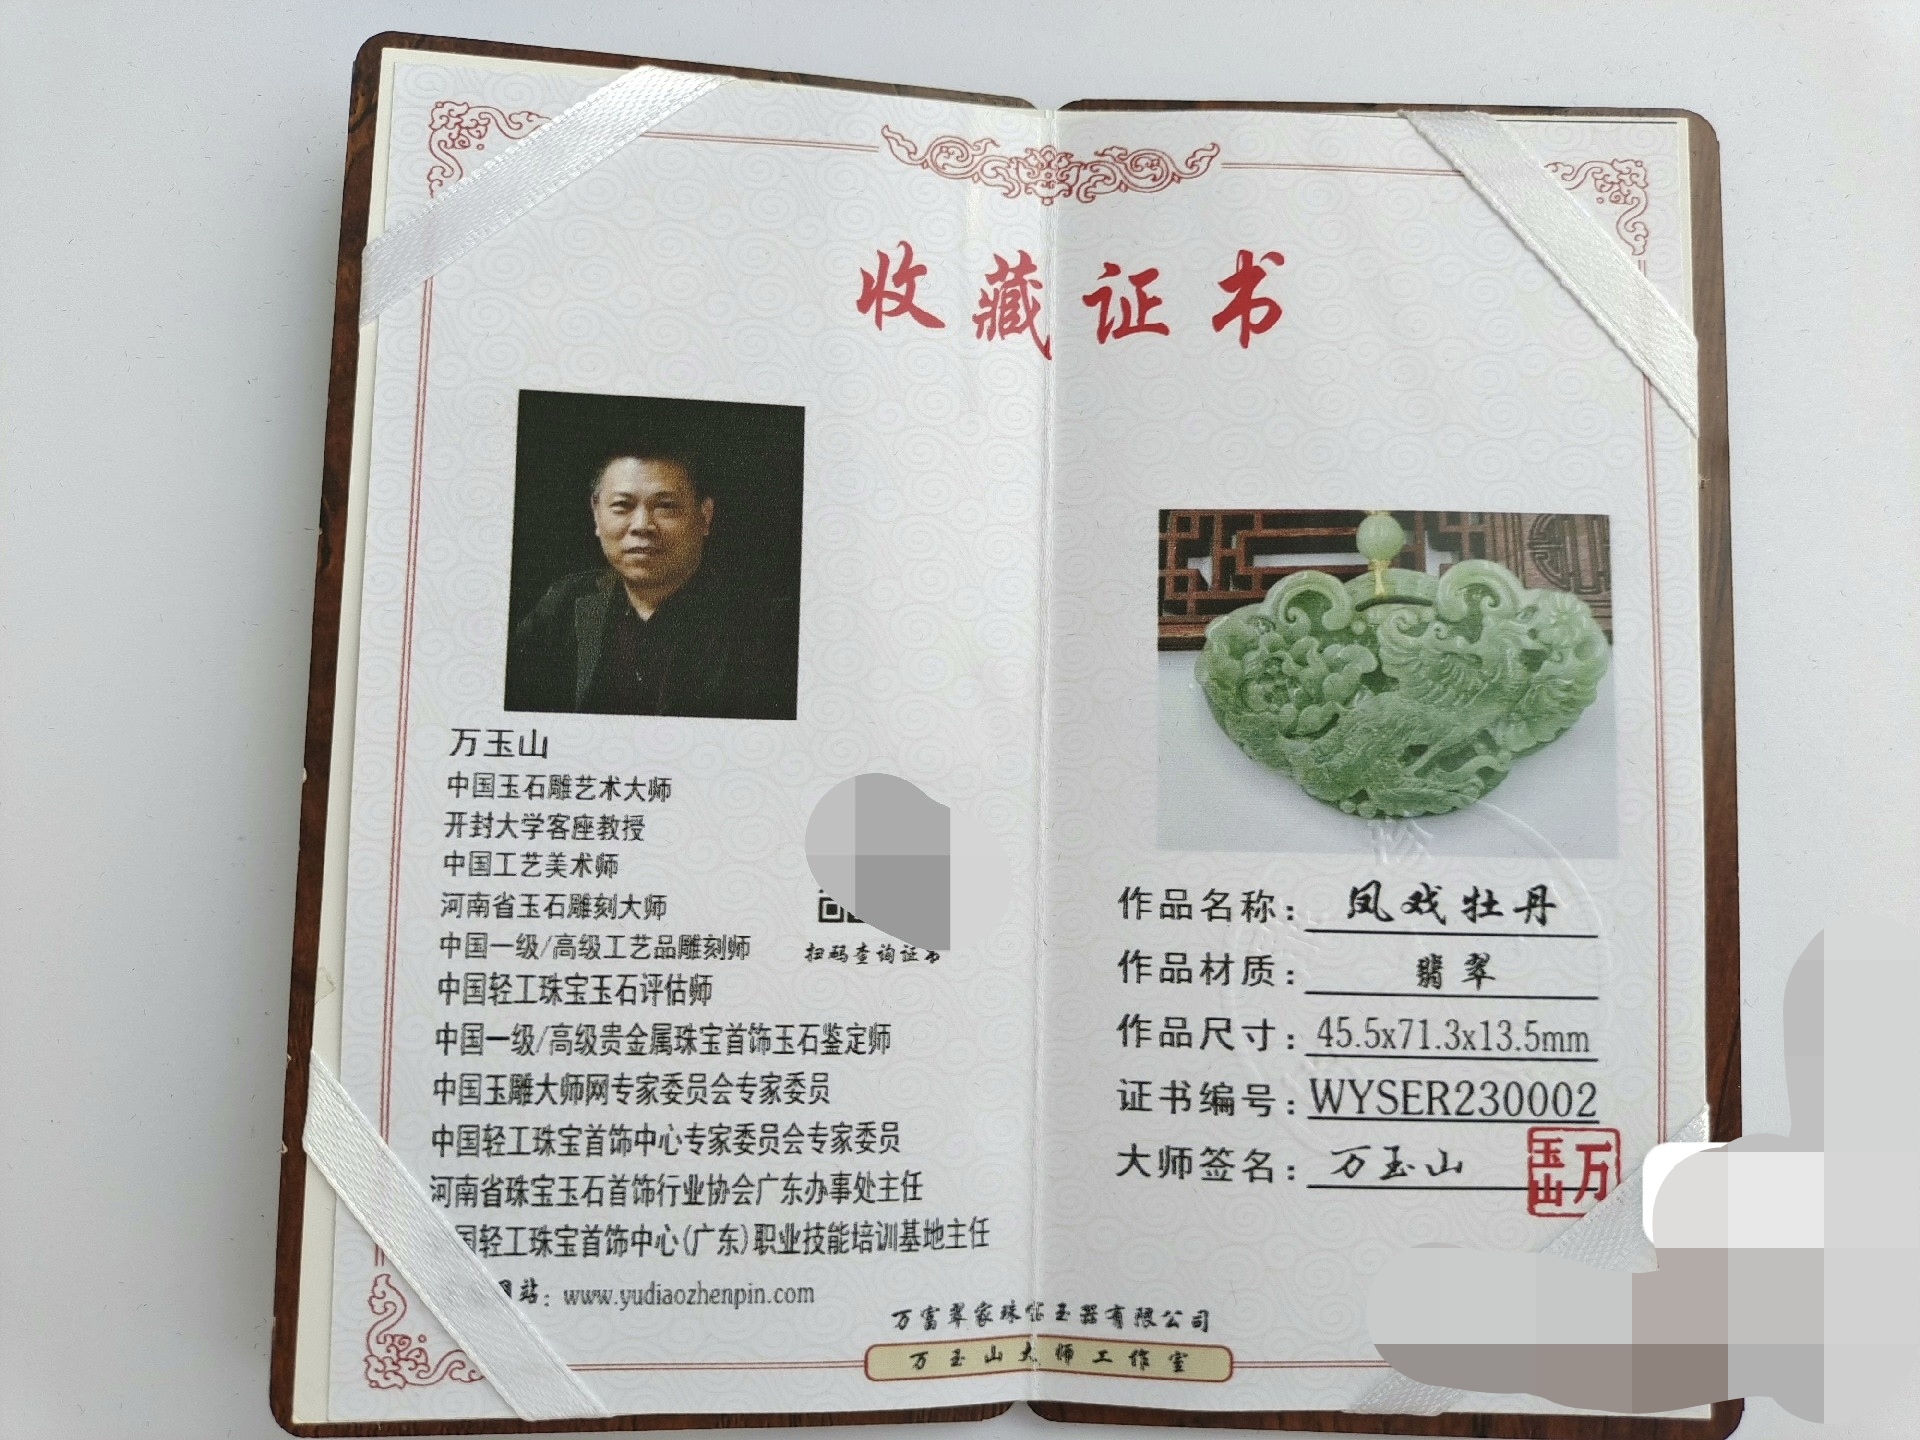 收藏证书
万玉山
中国玉石雕艺术大师
开封大学客座教授
中国工艺美术师
河南省玉石雕刻大师
中国一级/高级工艺品雕刻师
扫码查询证书
中国轻工珠宝玉石评估师
中国一级/高级贵金属珠宝首饰玉石鉴定师
中国玉雕大师网专家委员会专家委员
中国轻工珠宝首饰中心专家委员会专家委员
河南省珠宝玉石首饰行业协会广东办事处主任
国轻工珠宝首饰中心(广东)职业技能培训基地主任
站：www.yudiaozhenpin.com
作品名称：凤戏牡丹
作品材质：翡翠
作品尺寸：45.5x71.3x13.5mm
证书编号：WYSER230002
大师签名：万玉山
万玉山
万富翠家珠宝玉器有限公司
万玉山大师工作室